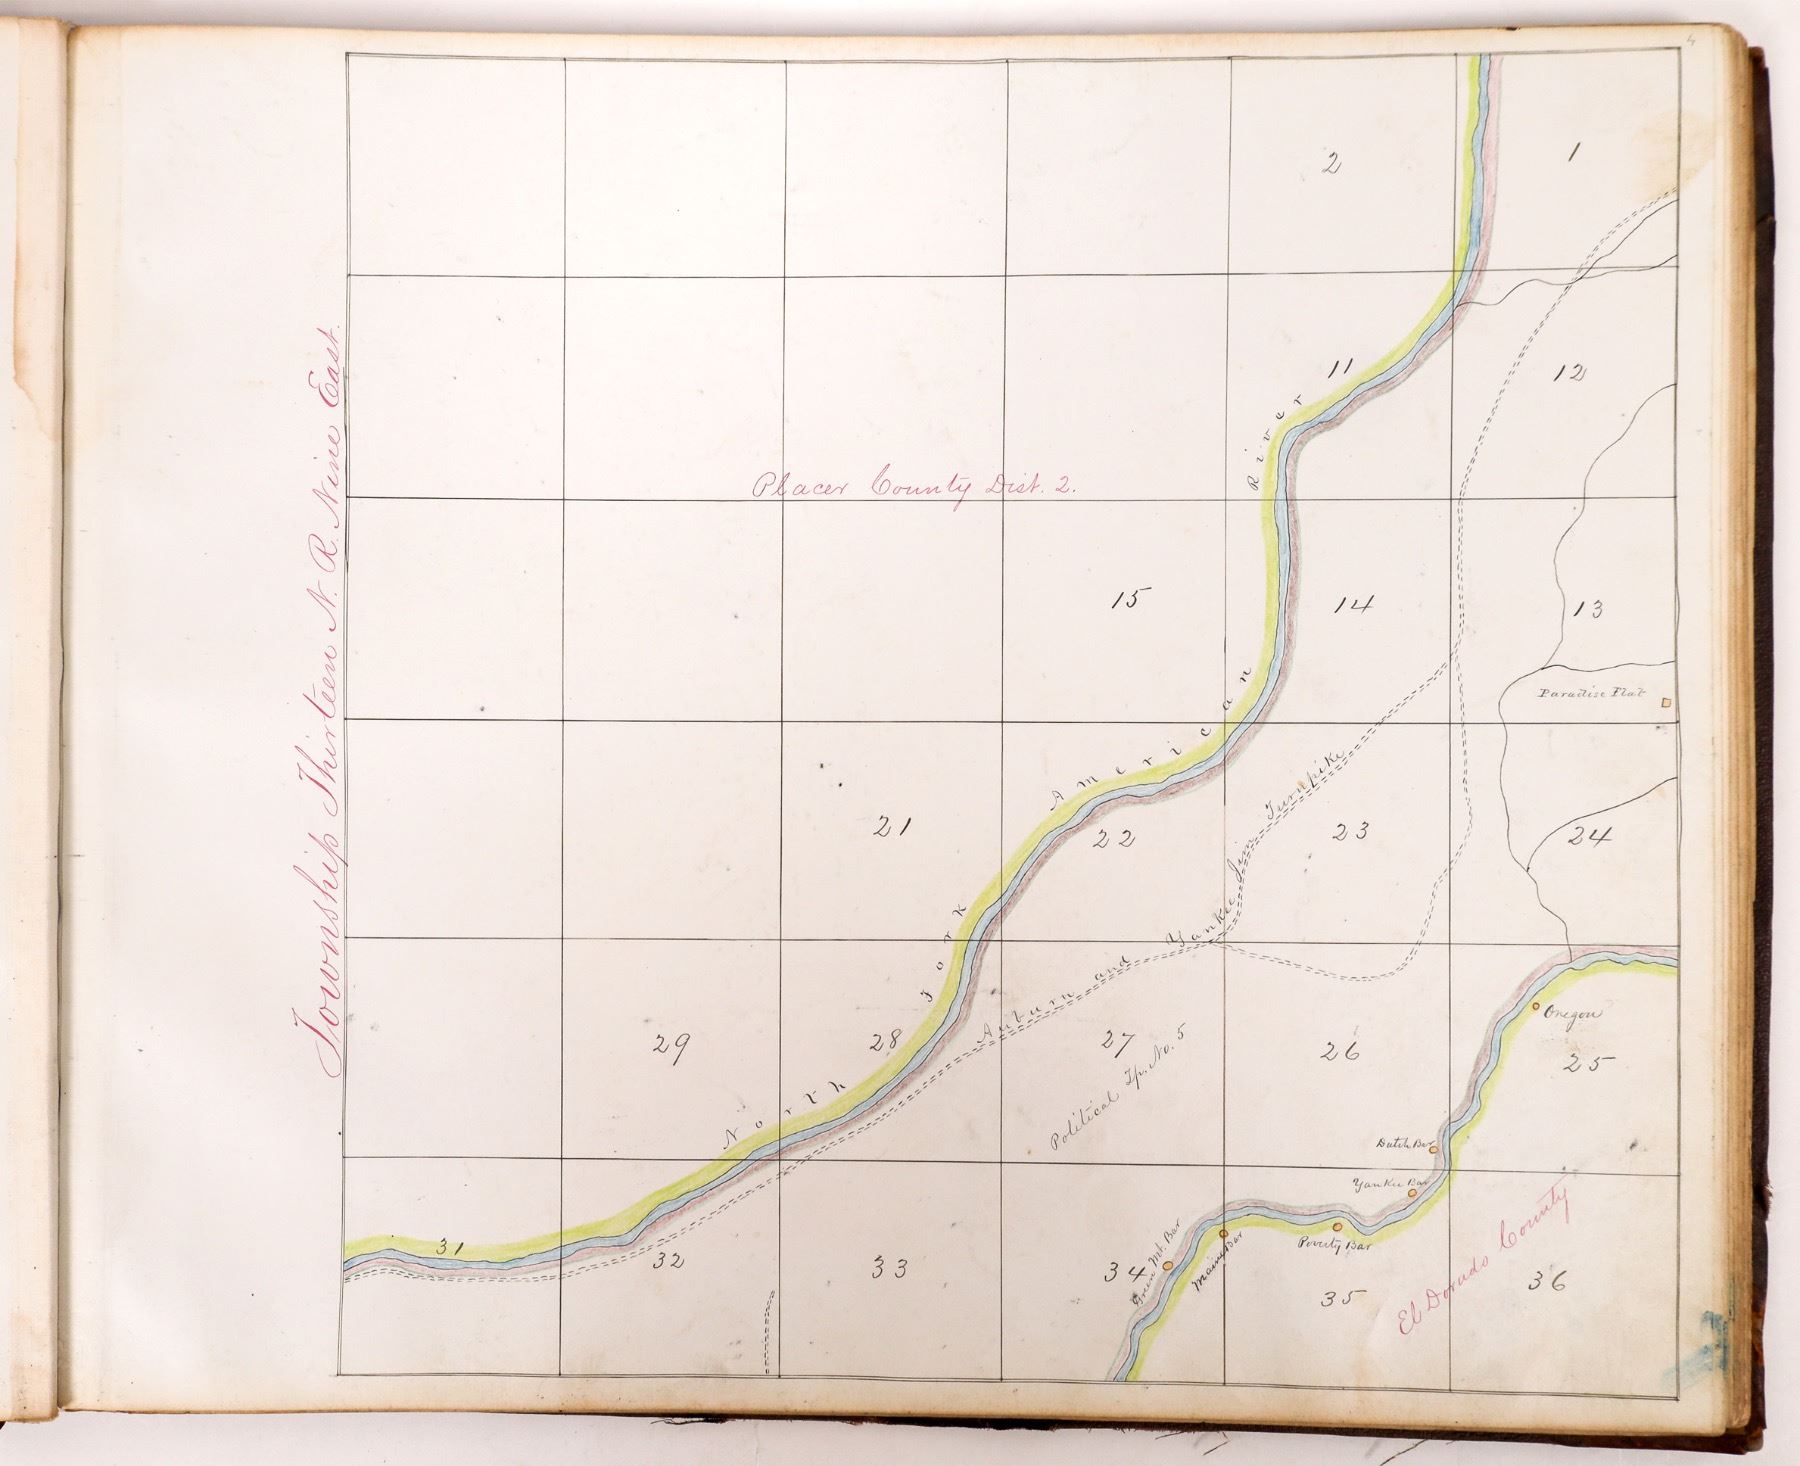 Township Thirteen N. R. Nine East.
4
2
1
11
12
River
Placer County Dist. 2.
15
14
13
Paradise Flat
American
Turnpike
21
22
23
24
Jim
Fork
Auburn and Yankee
29
28
27
26
Oregon
25
Political Tp. No. 5
North
Dutch Bar
Yankee Bar
31
32
33
34
Green Mt. Bar
Maine Bar
Poverty Bar
35
36
El Dorado County